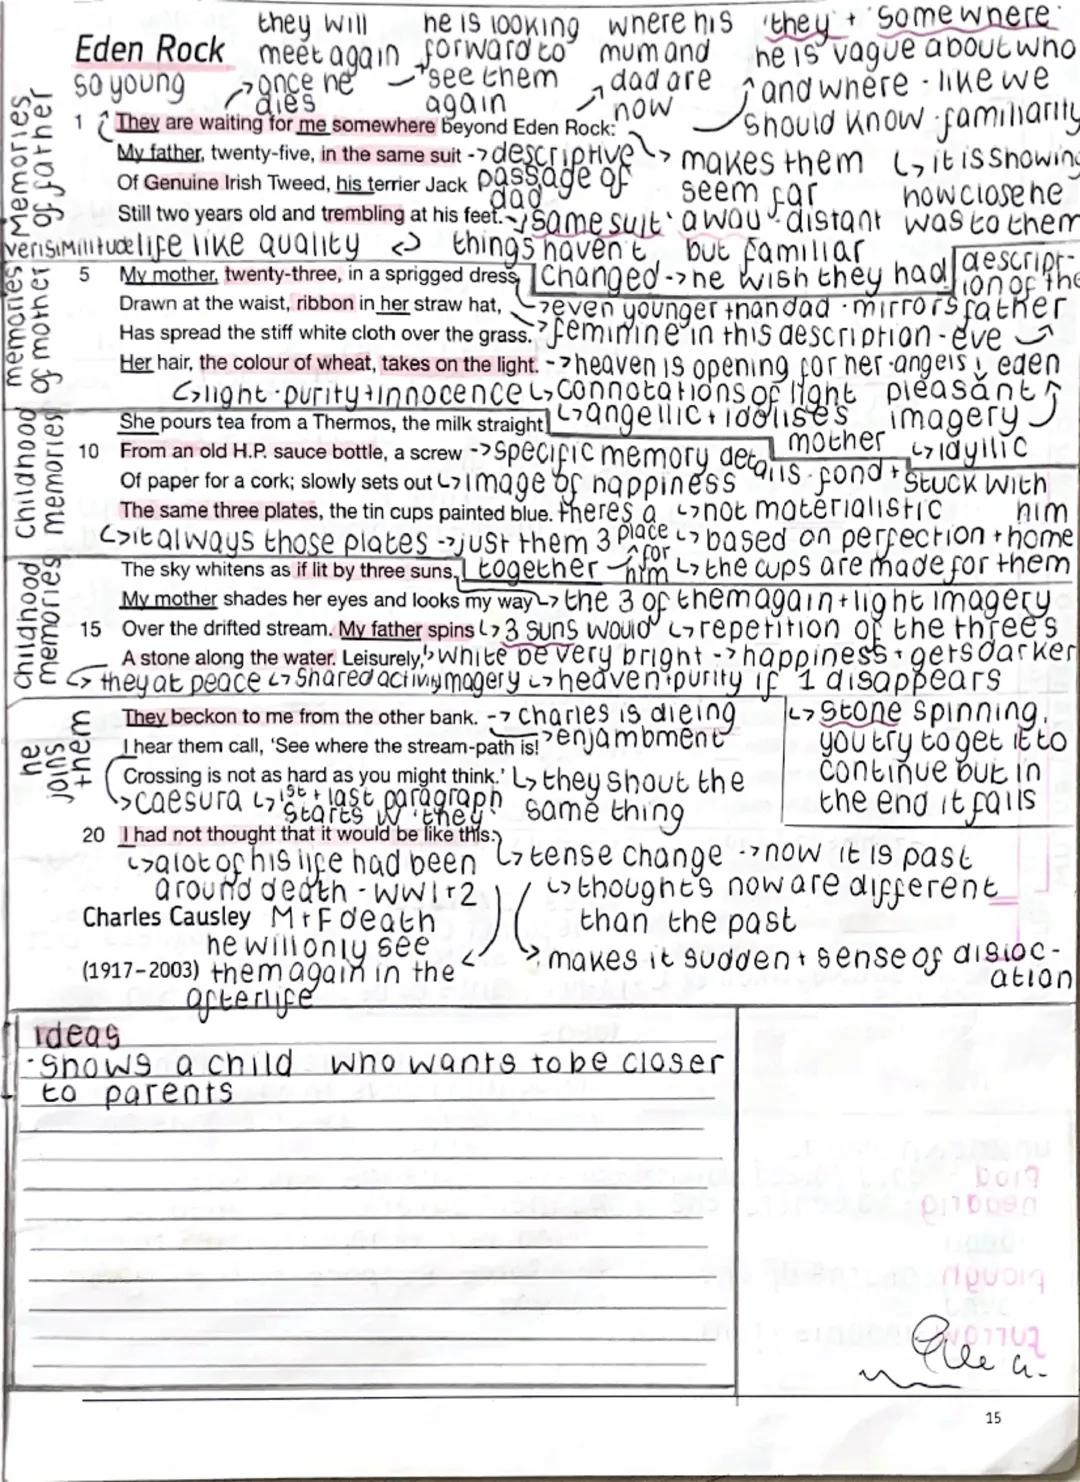 they will he is looking where his 'they' + 'somewhere'
Eden Rock meet again forward to mum and he is vague about who
so young once he see them dad are and where - like we
dies again now should know - familiarity
Memories of father
1 They are waiting for me somewhere beyond Eden Rock:
My father, twenty-five, in the same suit -> descriptive makes them it is showing
Of Genuine Irish Tweed, his terrier Jack passage of dad seem far how close he
Still two years old and trembling at his feet. 'same suit' away - distant was to them
verisimilitude life like quality things haven't but familiar
memories of mother
5 My mother, twenty-three, in a sprigged dress changed -> he wish they had description of the
Drawn at the waist, ribbon in her straw hat, even younger than dad - mirrors father
Has spread the stiff white cloth over the grass. feminine in this description - eve
Her hair, the colour of wheat, takes on the light. -> heaven is opening for her - angels eden
light - purity + innocence connotations of light pleasant
She pours tea from a Thermos, the milk straight angellic + idolises mother imagery
childhood memories
10 From an old H.P. sauce bottle, a screw -> specific memory details - fond + idyllic
Of paper for a cork; slowly sets out image of happiness stuck with him
The same three plates, the tin cups painted blue. theres a place for him not materialistic
it always those plates -> just them 3 together based on perfection + home
The sky whitens as if lit by three suns, the cups are made for them
childhood memories
My mother shades her eyes and looks my way the 3 of them again + light imagery
15 Over the drifted stream. My father spins 3 suns would repetition of the three's
A stone along the water. Leisurely, white be very bright -> happiness + gets darker
they at peace shared activity imagery heaven + purity if 1 disappears
he joins them
They beckon to me from the other bank. -> charles is dieing stone spinning,
I hear them call, 'See where the stream-path is! enjambment you try to get it to
Crossing is not as hard as you might think.' they shout the same thing continue but in
caesura 1st + last paragraph starts w 'they' the end it falls
20 I had not thought that it would be like this.
alot of his life had been tense change -> now it is past
around death - WW1 + 2 thoughts now are different
Charles Causley M + F death than the past
he will only see makes it sudden + sense of dislocation
(1917-2003) them again in the
afterlife
ideas
- Shows a child who wants to be closer
to parents
15